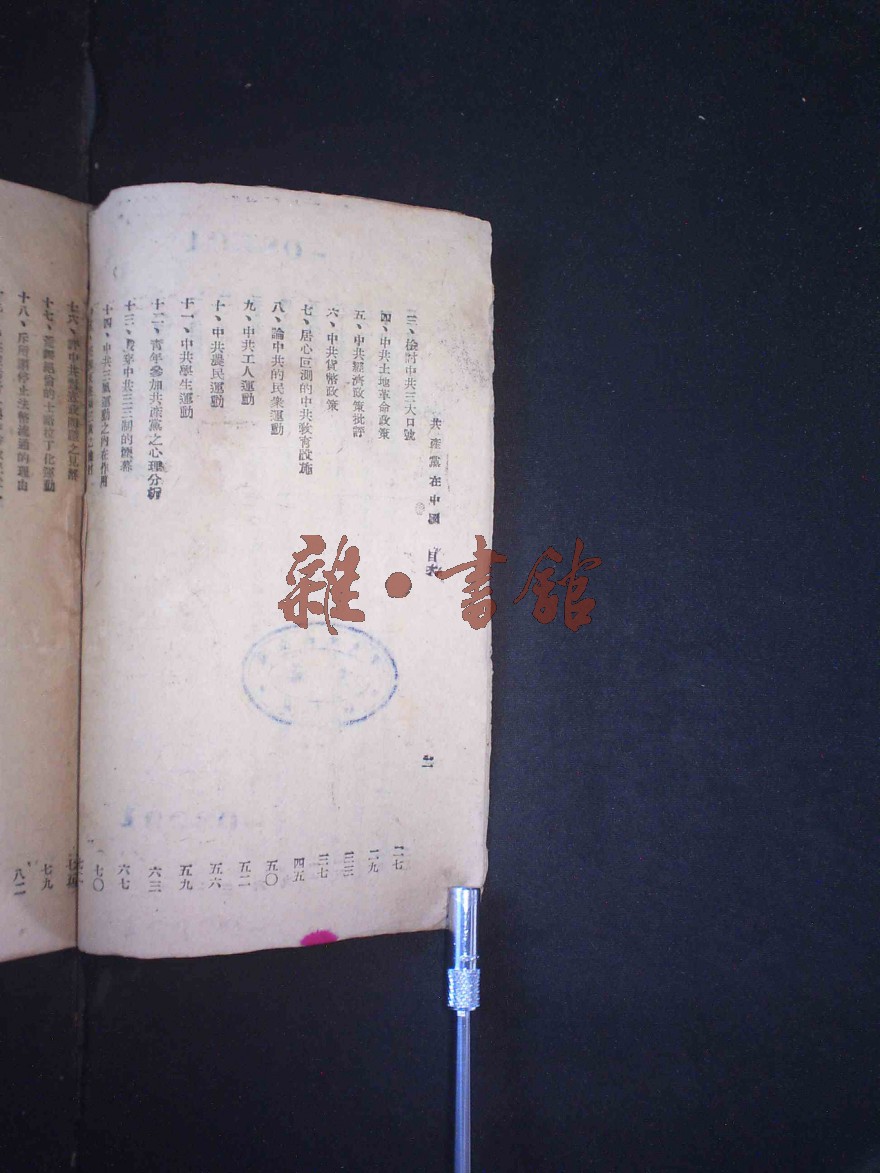 共產黨在中國 目次
二
三、檢討中共三大口號 二七
四、中共土地革命政策 二九
五、中共經濟政策批評 三三
六、中共貨幣政策 三七
七、居心叵測的中共敎育設施 四五
八、論中共的民衆運動 五〇
九、中共工人運動 五二
十、中共農民運動 五六
十一、中共學生運動 五九
十二、靑年參加共產黨之心理分析 六三
十三、中共三三制的 六七
十四、中共三風運動之內在作用 七〇
十六、
十七、的士 化運動 七九
十八、斥所謂停止法幣流通的理由 八二
雜·書館